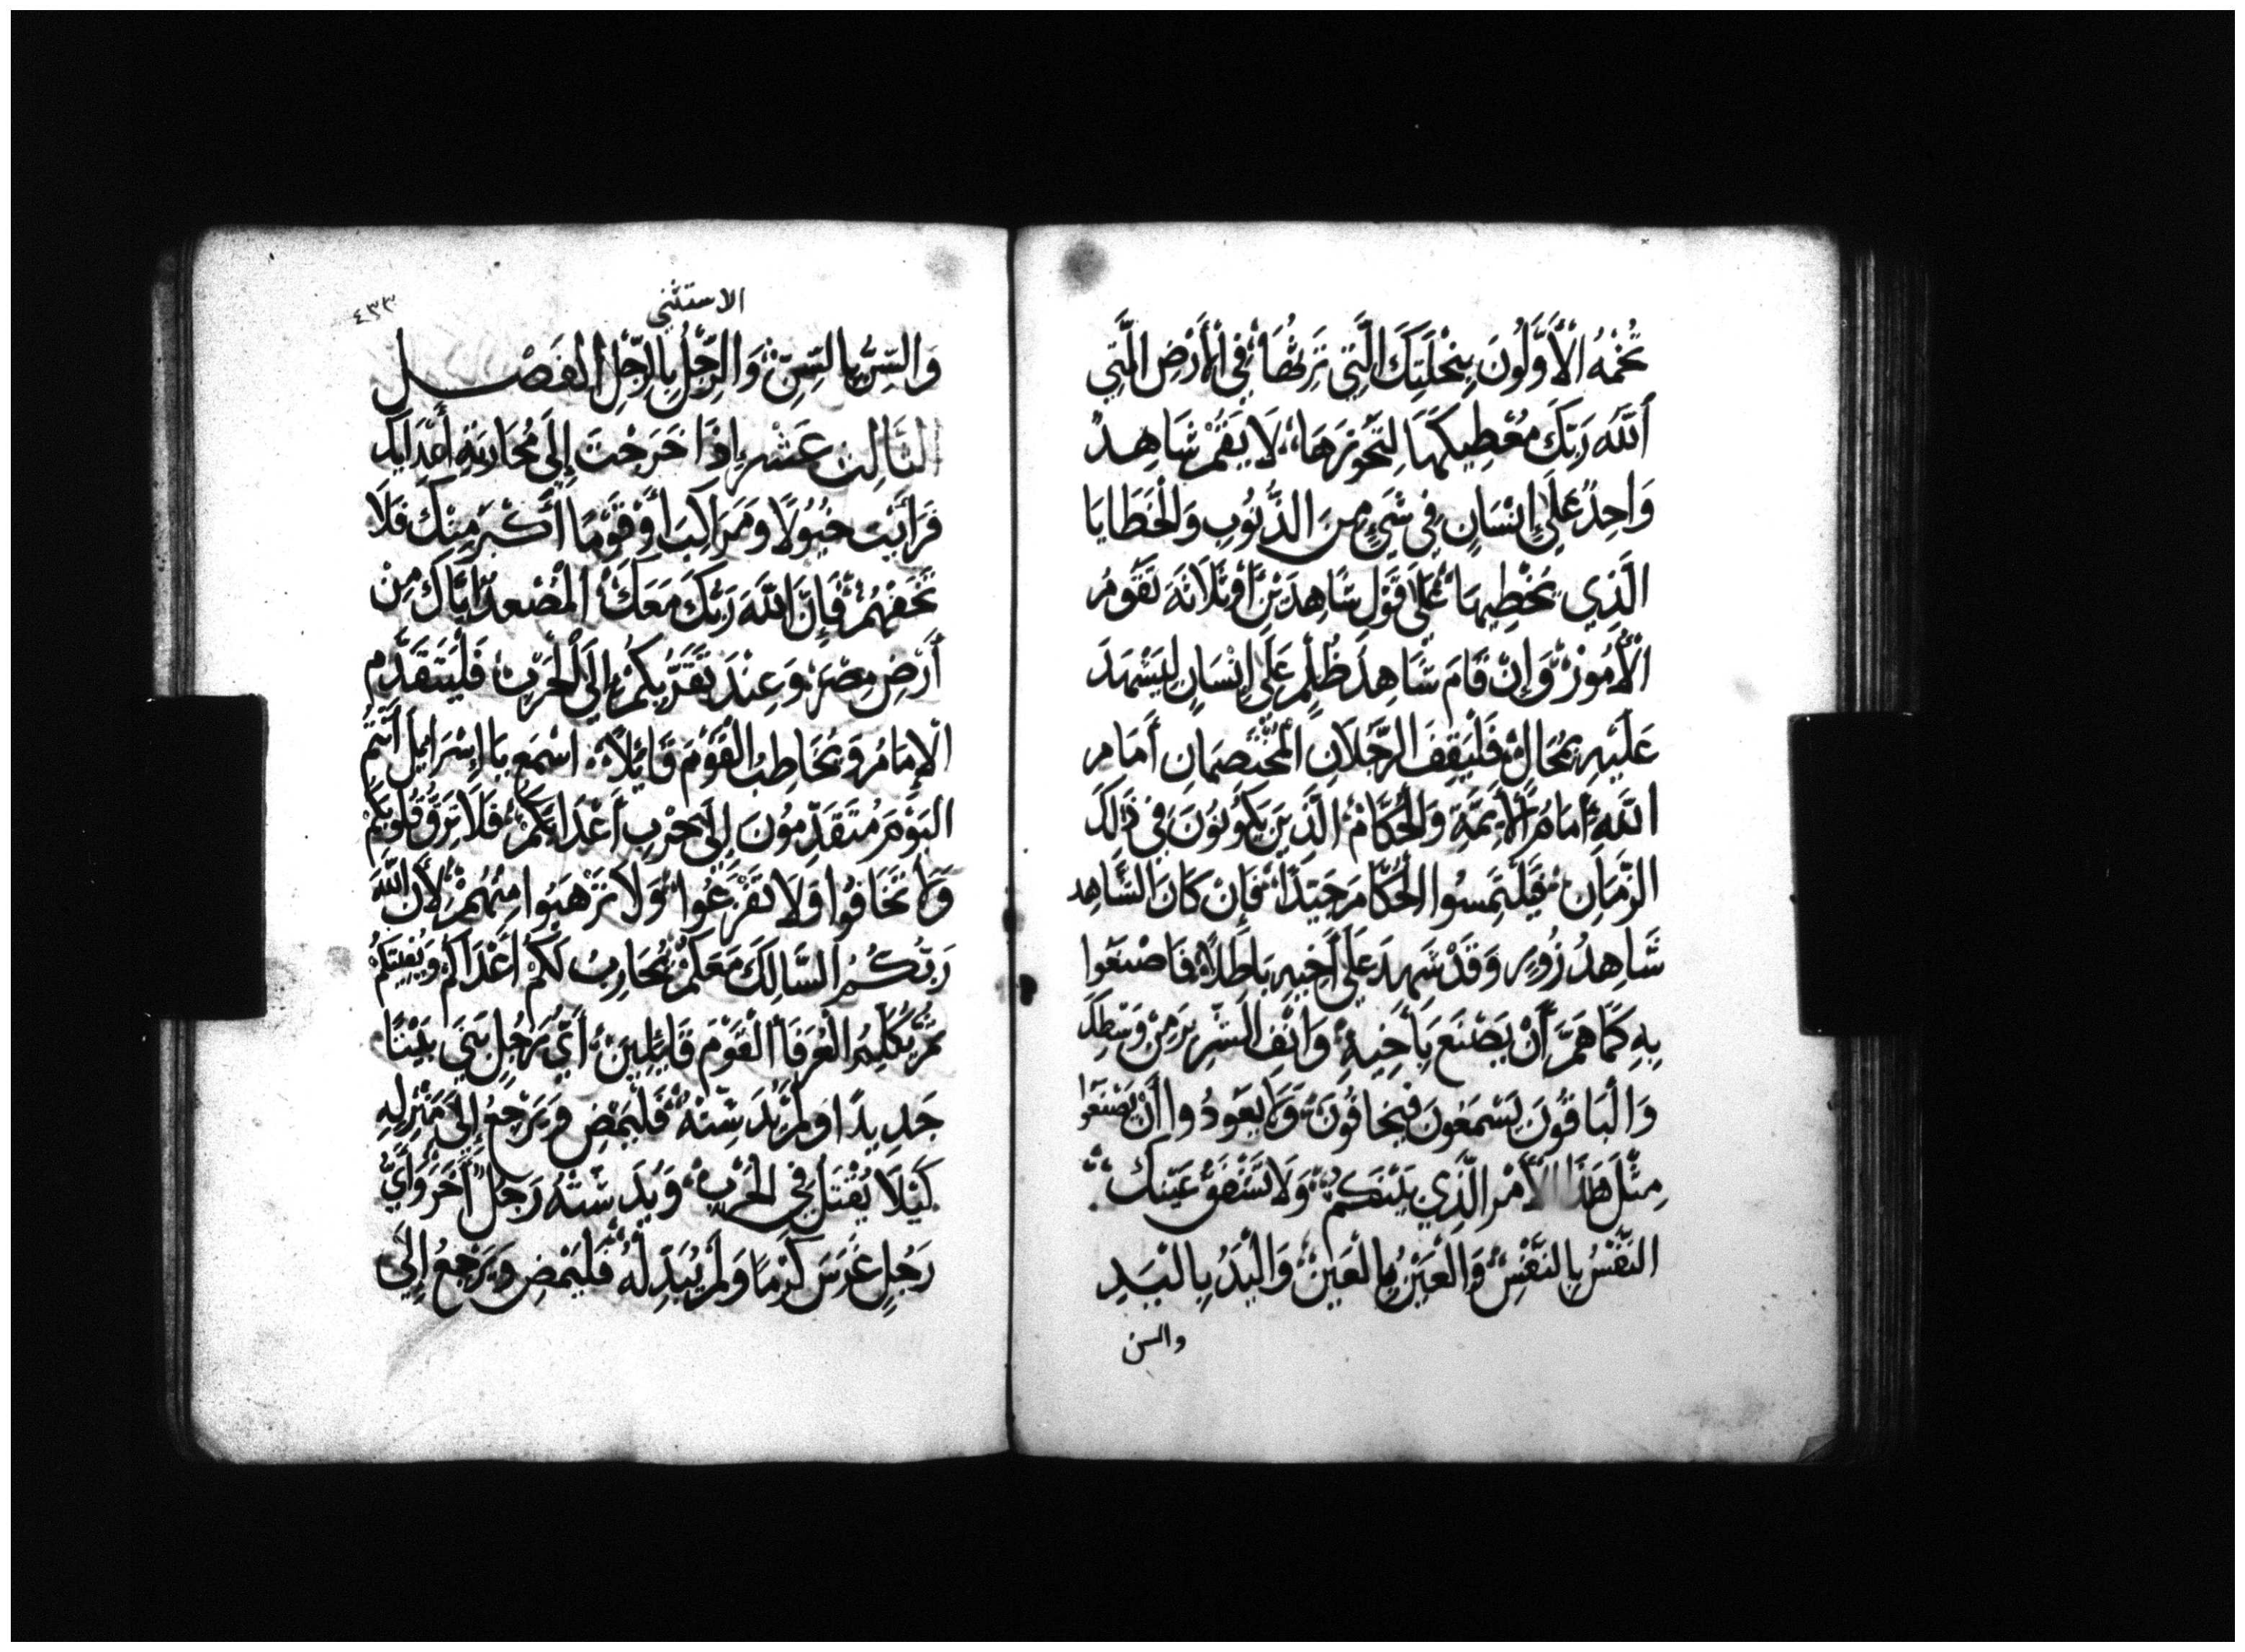 تُخْمَهُ الْأَوَّلُونَ بِنِحْلَتِكَ الَّتِي تَرِثُهَا فِي الْأَرْضِ الَّتِي
اَللَّهُ رَبُّكَ مُعْطِيكَهَا لِتَحُوزَهَا، لَا يَقُمْ شَاهِدٌ
وَاحِدٌ عَلَى إِنْسَانٍ فِي شَيْءٍ مِنَ الذُّنُوبِ وَالْخَطَايَا
الَّذِي يُخْطِيهَا عَلَى قَوْلِ شَاهِدَيْنِ أَوْ ثَلَاثَةٍ تَقُومُ
الْأُمُورُ وَإِنْ قَامَ شَاهِدُ ظُلْمٍ عَلَى إِنْسَانٍ لِيَشْهَدَ
عَلَيْهِ بِمُحَالٍ فَلْيَقِفِ الرَّجُلَانِ الْمُخْتَصِمَانِ أَمَامَ
اللَّهِ أَمَامَ الْأَيِمَّةِ وَالْحُكَّامِ الَّذِينَ يَكُونُونَ فِي ذَلِكَ
الزَّمَانِ فَلْيَلْتَمِسُوا الْحُكَّامُ جَيِّدًا فَإِنْ كَانَ الشَّاهِد
شَاهِدُ زُورٍ وَقَدْ شَهِدَ عَلَى أَخِيهِ بَاطِلًا فَاصْنَعُوا
بِهِ كَمَا هَمَّ أَنْ يَصْنَعَ بِأَخِيهِ وَانْفِ الشِّرِّيرَ مِنْ وَسْطِكَ
وَالْبَاقُونَ يَسْمَعُونَ فَيَخَافُونَ وَلَا يَعُودُوا أَنْ يَصْنَعُوا
مِثْلَ هَذَا الْأَمْرِ الَّذِي بَيْنَكُمْ وَلَا تَشْفَقْ عَيْنَكَ
النَّفْسُ بِالنَّفْسِ وَالْعَيْنُ بِالْعَيْنِ وَالْيَدُ بِالْيَدِ
والسن
الاستثنى
٤٣٣
وَالسِّنُّ بِالسِّنِّ وَالرِّجْلُ بِالرِّجْلِ الفَصْل
الثَّالِث عَشْر إِذَا خَرَجْتَ إِلَى مُحَارَبَةِ أَعْدَايِكَ
فَرَأَيْتَ خُيُولًا وَمَرَاكِبَ أَوْ قَوْمًا أَكْبَرَ مِنْكَ فَلَا
تَخَفْهُمْ فَإِنَّ اللَّهَ رَبَّكَ مَعَكَ الْمُصْعِدُ إِيَّاكَ مِنْ
أَرْضِ مِصْرَ وَعِنْدَ تَقَرُّبِكُمْ إِلَى الْحَرْبِ فَلْيَتَقَدَّمِ
الْإِمَامُ وَيُخَاطِبُ الْقَوْمَ قَائِلًا اسْمَعْ يَا إِسْرَايِيلَ أَنْتُمُ
الْيَوْمَ مُتَقَدِّمُونَ إِلَى حَرْبِ أَعْدَايِكُمْ فَلَا تَرِقَّ قُلُوبُكُمْ
وَلَا تَخَافُوا وَلَا تَفْزَعُوا وَلَا تَرْهَبُوا مِنْهُمْ لِأَنَّ اللَّهَ
رَبُّكُمُ السَّالِكَ مَعَكُمْ يُحَارِبُ لَكُمْ أَعْدَاكُمْ وَيُغِيثَكُمْ
ثُمَّ يُكَلِّمُ الْعُرَفَا الْقَوْمَ قَايِلِينَ أَيُّ رَجُلٍ بَنَى بَيْتًا
جَدِيدًا وَلَمْ يُدَشِّنْهُ فَلْيَمْضِ وَيَرْجِعُ إِلَى مَنْزِلِهِ
كَيْلَا يُقْتَلَ فِي الْحَرْبِ وَيُدَشِّنَهُ رَجُلٌ آخَرُ وَأَيُّ
رَجُلٍ غَرَسَ كَرْمًا وَلَمْ يُبَدِّلْهُ فَلْيَمْضِ وَيَرْجِعُ إِلَى